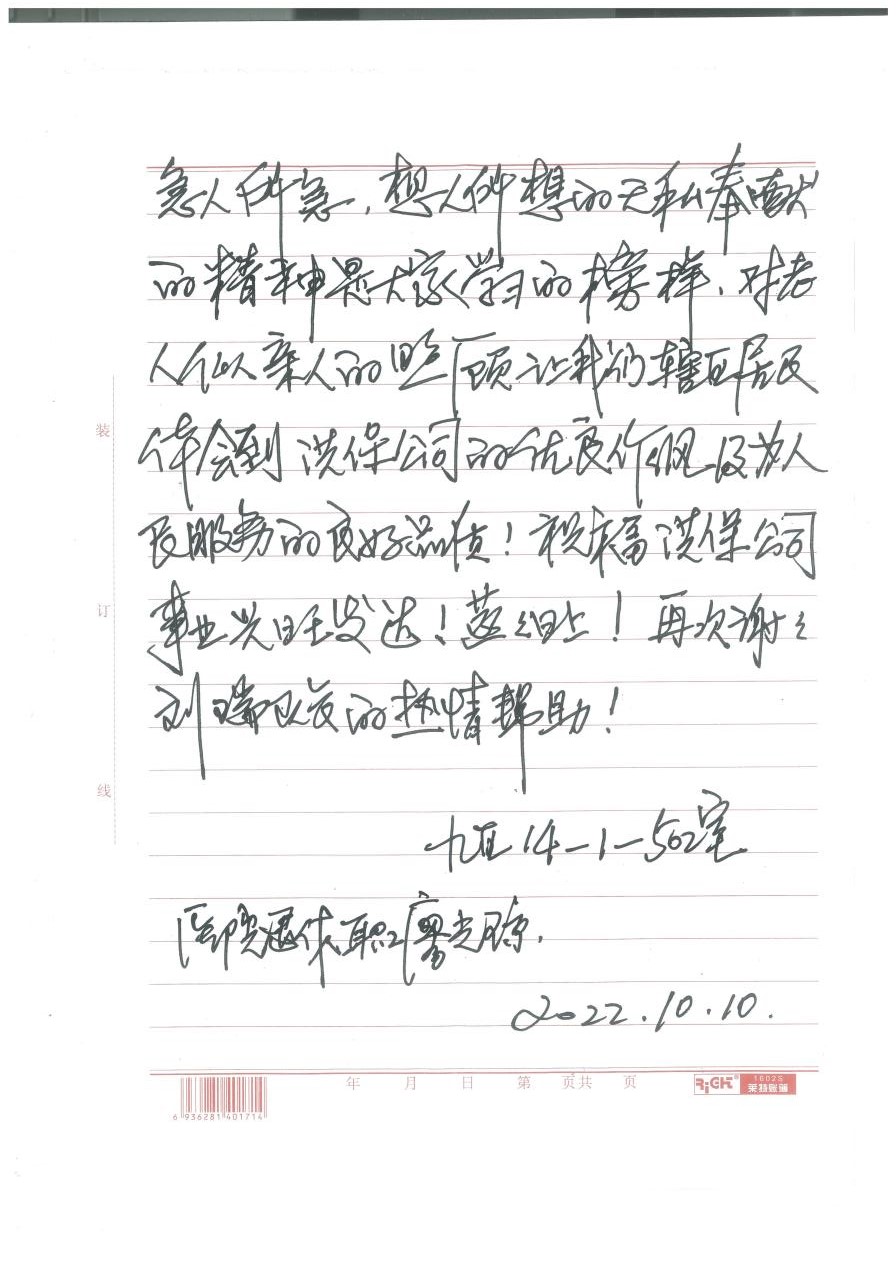 急人所急,想人所想的无私奉献
的精神是大家学习的榜样.对老
人似亲人的照顾让我们辖区居民
体会到洪保公司的优良作风及为人
民服务的良好品质!祝福洪保公司
事业兴旺发达!蒸蒸日上!再次谢谢
刘瑞队长的热情帮助!
九区14-1-502室
退休职工
2022.10.10.
装
订
线
年 月 日 第 页共 页
RiGHt® 1602S
莱特账簿
6 936281 401714